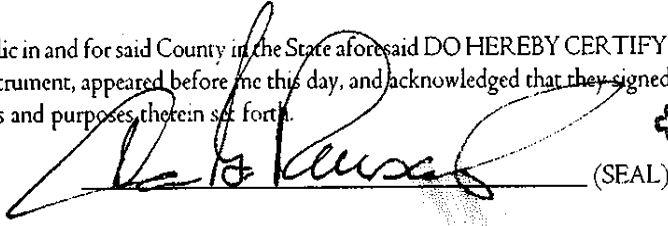 lic in and for said County in the State aforesaid DO HEREBY CERTIFY
trument, appeared before me this day, and acknowledged that they signed
s and purposes therein set forth.
(SEAL)